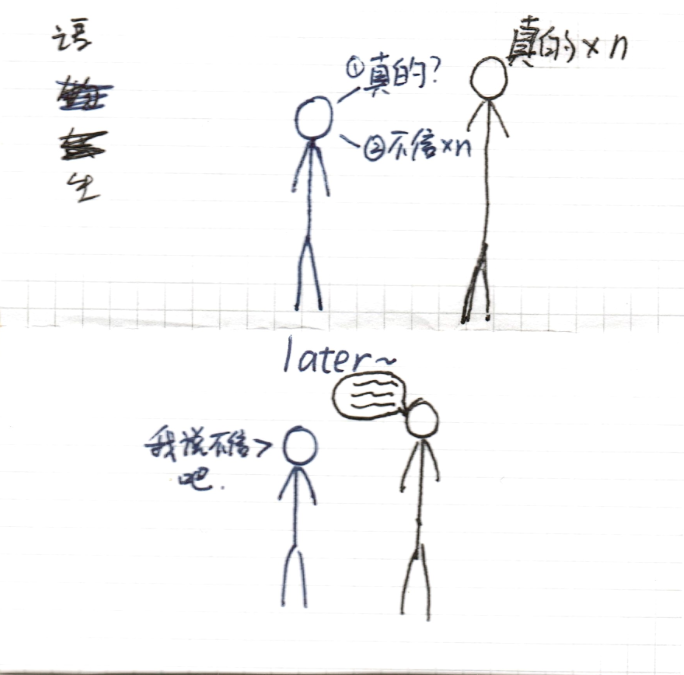 语
生
①真的？
②不信×n
真的×n
later~
我说不信
吧.